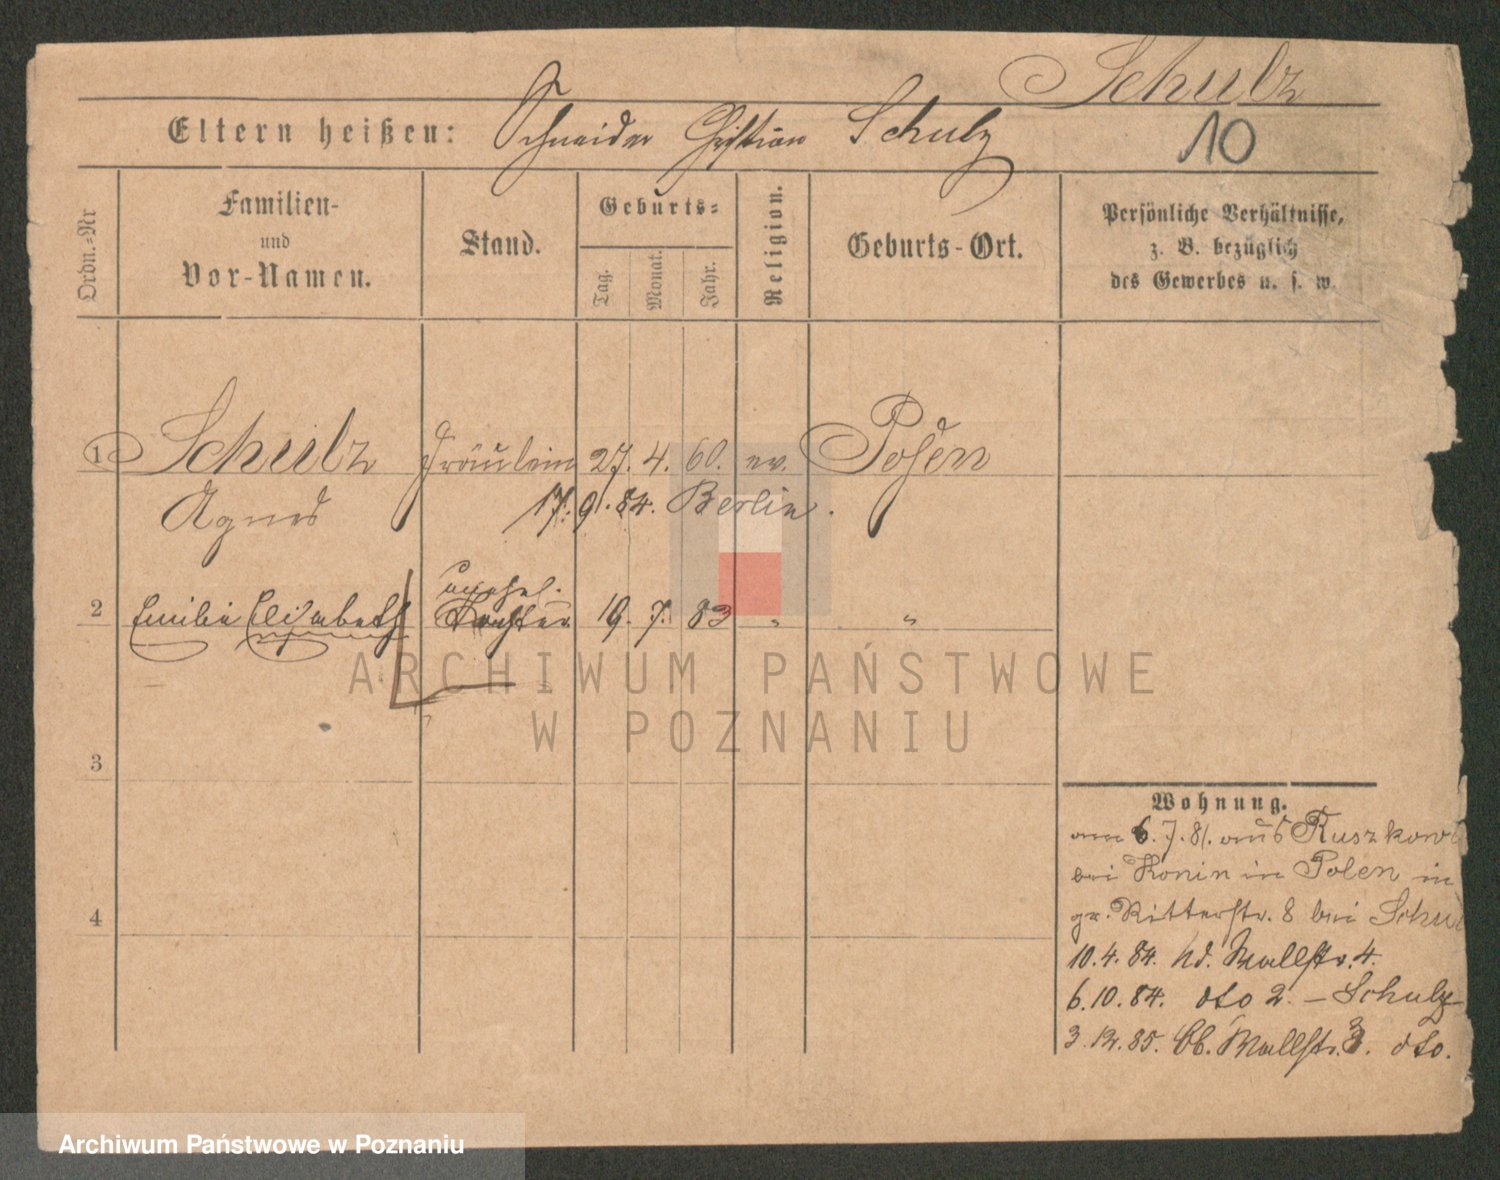 Schulz
Eltern heißen: Schneider Christian Schulz
10
Ordn.-Nr
Familien-
und
Vor-Namen.
Stand.
Geburts-
Tag.
Monat.
Jahr.
Religion.
Geburts-Ort.
Persönliche Verhältnisse,
z. B. bezüglich
des Gewerbes u. s. w.
1 Schulz Fräulein 27. 4. 60. ev. Posen
Agnes 17. 9. 84. Berlin.
unehel.
2 Emilie Elisabeth Tochter 19. 7. 83 " "
3
4
Wohnung.
am 6. 7. 81. aus Ruszkow
bei Konin in Polen in
gr. Ritterstr. 8 bei Schul
10. 4. 84. Nd. Wallstr. 4.
6. 10. 84. dto 2. – Schulz
3. 12. 85. Ob. Wallstr. 3. dto.
ARCHIWUM PAŃSTWOWE
W POZNANIU
Archiwum Państwowe w Poznaniu